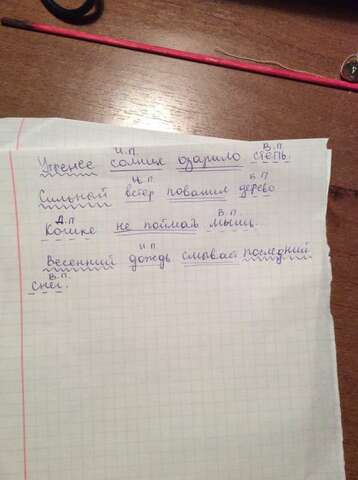 И.П В.П
Утренее солнце озарило степь.
И.П В.П
Сильный ветер повалил дерево
Д.П В.П.
Кошке не поймать мышь.
И.П
Весенний дождь смывал последний
В.П.
снег.